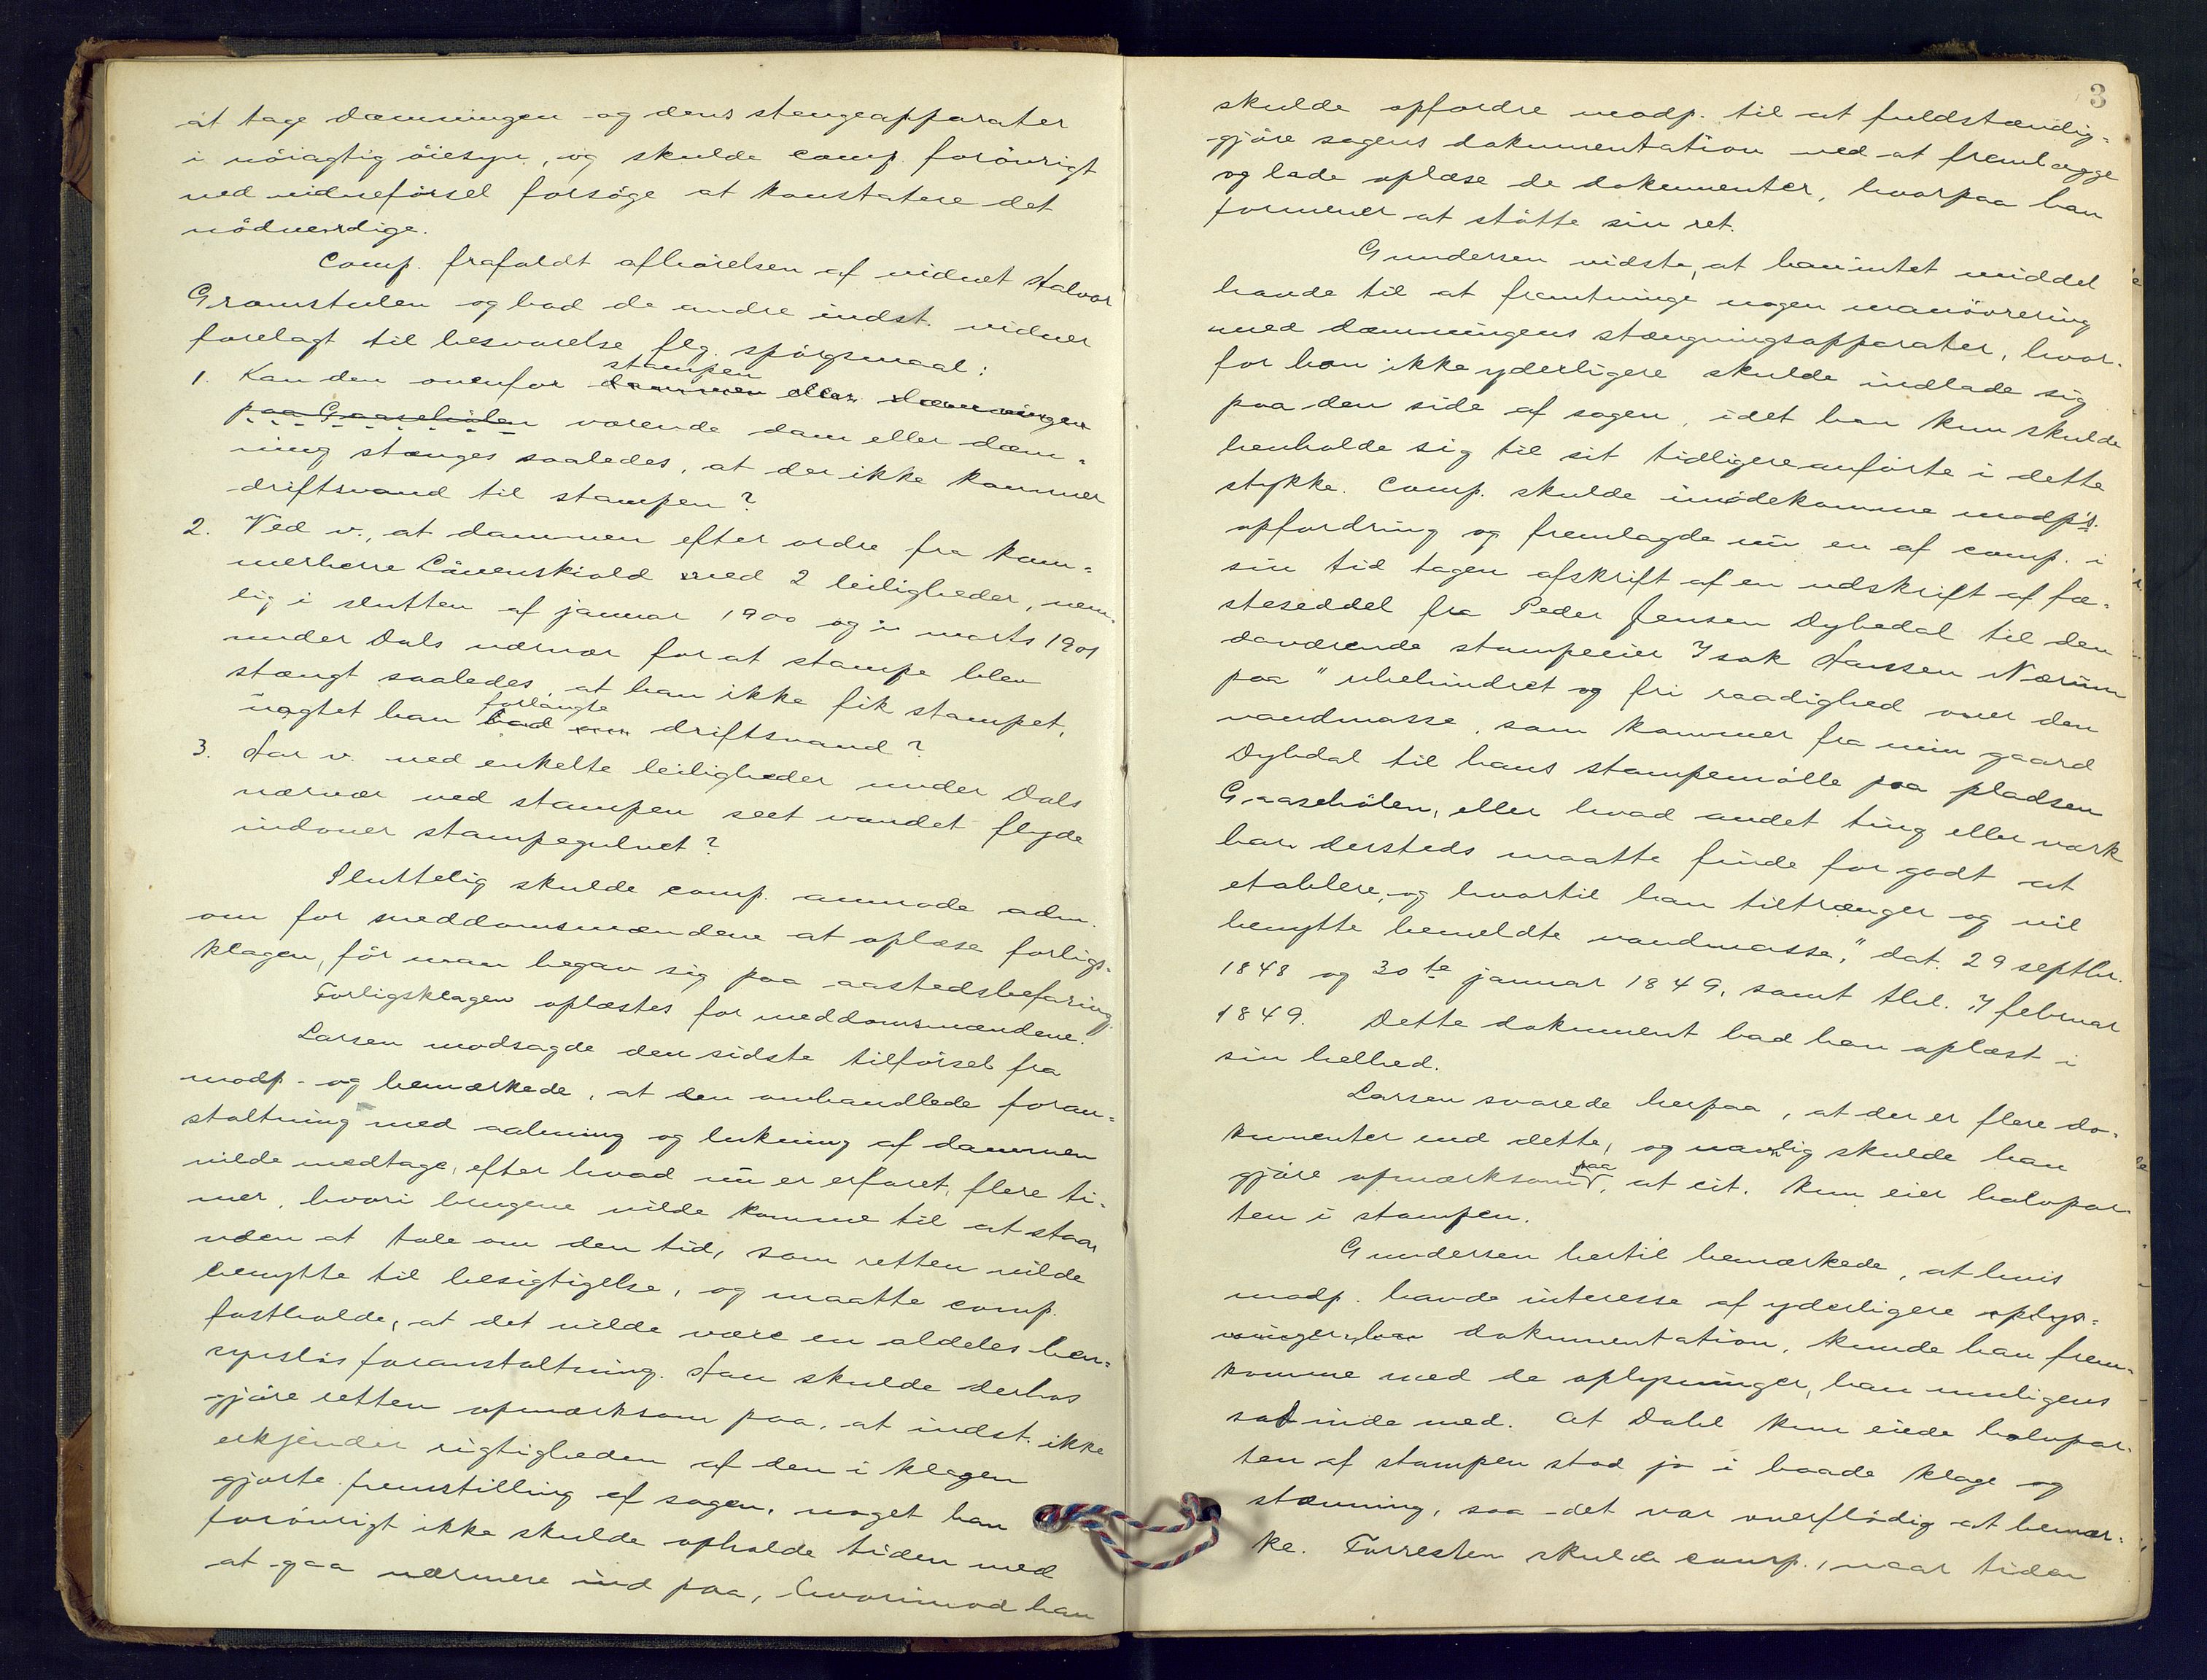 at tage dæmningen og dens stengeapparater
i nöiagtig öiesyn, og skulde comp. forövrigt
ved vidneförsel forsöge at konstatere det
nödvendige.
Comp. frafaldt afhörelsen af vidnet Halvor
Gromstulen og bad de andre indst. vidner
forelagt til besvarelse flg. spörgsmaal:
stampen
1. Kan den ovenfor dammen eller dæmningen
paa Gaasehölen værende dam eller dæm-
ning stænges saaledes, at der ikke kommer
driftsvand til stampen?
2. Ved v., at dammen efter ordre fra kam-
merherre Lövenskiold ved 2 leiligheder, nem-
lig i slutten af januar 1900 og i marts 1901
under Dals nærvær for at stampe blev
stængt saaledes, at han ikke fik stampet,
forlangte
uagtet han bad om driftsvand?
3. Har v. ved enkelte leiligheder under Dals
nærvær ved stampen seet vandet flyde
indover stampegulvet?
Sluttelig skulde comp. anmode adm.
om for meddomsmændene at oplæse forligs-
klagen, för man begav sig paa aastedsbefaring.
Forligsklagen oplæstes for meddomsmændene.
Larsen modsagde den sidste tilförsel fra
modp. og bemærkede, at den omhandlede foran-
staltning med aabning og lukning af dammen
vilde medtage, efter hvad nu er erfaret, flere ti-
mer, hvori brugene vilde komme til at staa
uden at tale om den tid, som retten vilde
benytte til besigtigelse, og maatte comp.
fastholde, at det vilde være en aldeles hen-
synslös foranstaltning. Han skulde derhos
gjöre retten opmærksom paa, at indst. ikke
erkjender rigtigheden af den i klagen
gjorte fremstilling af sagen, noget han
forövrigt ikke skulde opholde tiden med
at gaa nærmere ind paa, hvorimod han
3
skulde opfordre modp. til at fuldstændig-
gjöre sagens dokumentation ved at fremlægge
og lade oplæse de dokumenter, hvorpaa han
formener at stötte sin ret.
Gundersen vidste, at han intet middel
havde til at fremtvinge nogen manövrering
med dæmningens stængningsapparater, hvor-
for han ikke yderligere skulde indlade sig
paa den side af sagen, idet han kun skulde
henholde sig til sit tidligere anförte i dette
stykke. Comp. skulde imödekomme modp's.
opfordring og fremlagde nu en af comp. i
sin tid tagen afskrift af en udskrift af fæ-
steseddel fra Peder Jensen Dybedal til den
daværende stampeeier Isak Hanssen Nærum
paa "ubehindret og fri raadighed over den
vandmasse, som kommer fra min gaard
Dybdal til hans stampemölle paa pladsen
Gaasehölen, eller hvad andet ting eller værk
han dersteds maatte finde for godt at
etablere, og hvortil han tiltrænger og vil
benytte bemeldte vandmasse," dat. 29 septbr.
1848 og 30te januar 1849, samt thl. 7 februar
1849. Dette dokument bad han oplæst i
sin helhed.
Larsen svarede herpaa, at der er flere do-
kumenter end dette, og navnlig skulde han
paa
gjöre opmærksom, at cit. kun eier halvpar-
ten i stampen.
Gundersen hertil bemærkede, at hvis
modp. havde interesse af yderligere oplys-
ninger dokumentation, kunde han frem-
komme med de oplysninger, han muligens
sad inde med. At Dahl kun eiede halvpar-
ten af stampen stod jo i baade klage og
stævning, saa det var overflödig at bemær-
ke. Forresten skulde comp., naar tiden